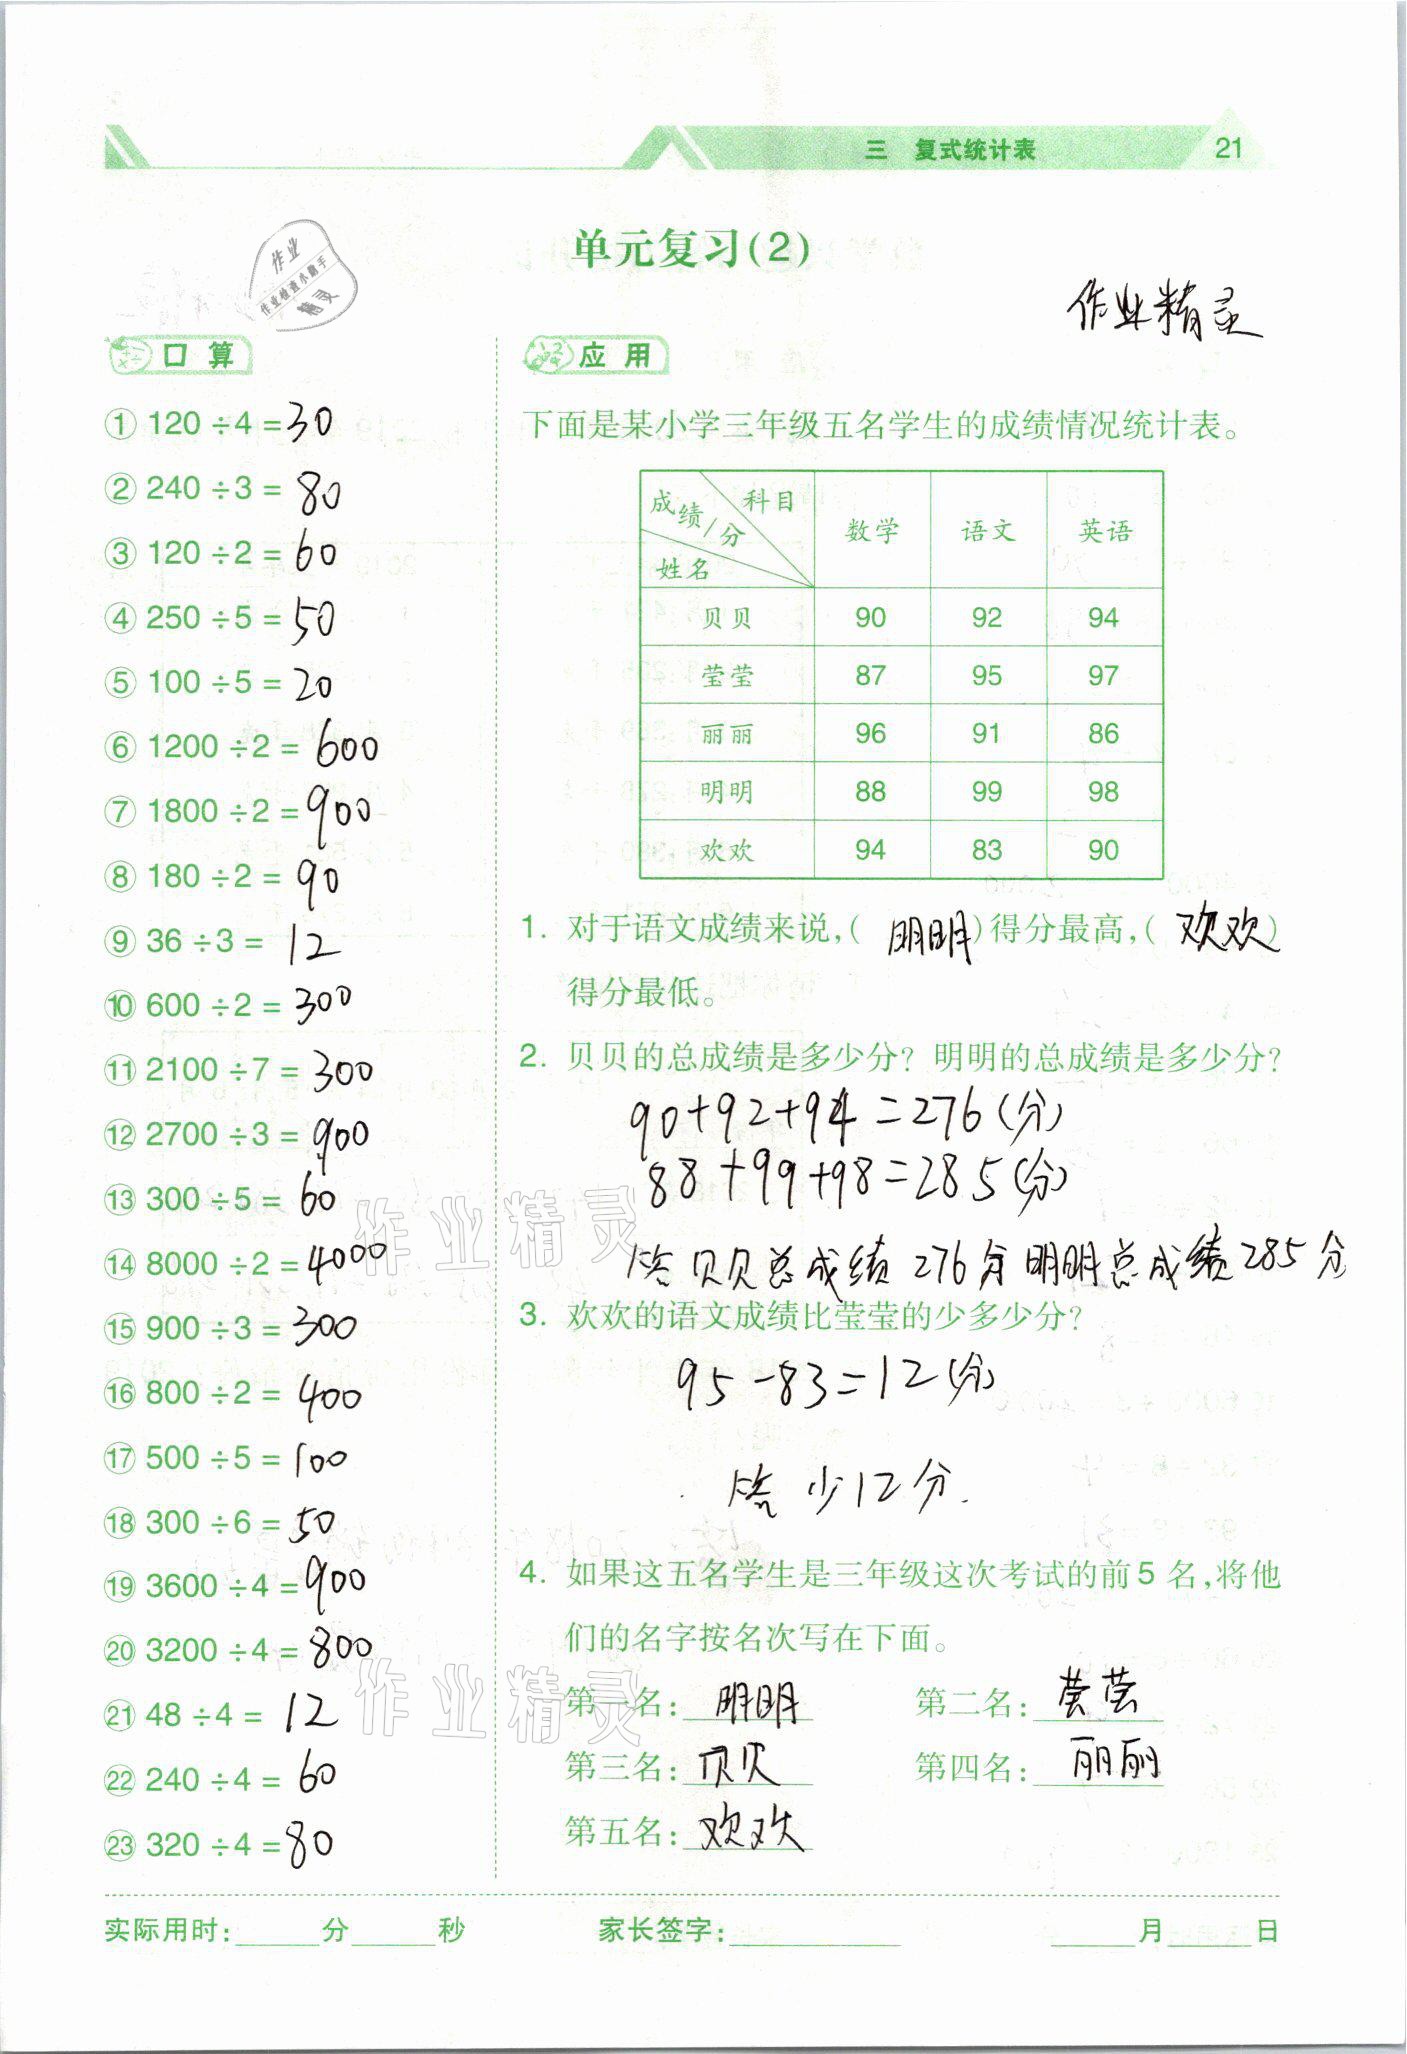 三 复式统计表 21
单元复习(2)
作业
作业检查小助手
精灵
作业精灵
口算
① 120÷4=30
② 240÷3=80
③ 120÷2=60
④ 250÷5=50
⑤ 100÷5=20
⑥ 1200÷2=600
⑦ 1800÷2=900
⑧ 180÷2=90
⑨ 36÷3=12
⑩ 600÷2=300
⑪ 2100÷7=300
⑫ 2700÷3=900
⑬ 300÷5=60
⑭ 8000÷2=4000
⑮ 900÷3=300
⑯ 800÷2=400
⑰ 500÷5=100
⑱ 300÷6=50
⑲ 3600÷4=900
⑳ 3200÷4=800
㉑ 48÷4=12
㉒ 240÷4=60
㉓ 320÷4=80
应用
下面是某小学三年级五名学生的成绩情况统计表。
成绩/分 科目 姓名 数学 语文 英语
贝贝 90 92 94
莹莹 87 95 97
丽丽 96 91 86
明明 88 99 98
欢欢 94 83 90
1. 对于语文成绩来说,(明明)得分最高,(欢欢)
得分最低。
2. 贝贝的总成绩是多少分?明明的总成绩是多少分?
90+92+94=276(分)
88+99+98=285(分)
答贝贝总成绩276分明明总成绩285分
3. 欢欢的语文成绩比莹莹的少多少分?
95-83=12(分)
答 少12分.
4. 如果这五名学生是三年级这次考试的前5名,将他
们的名字按名次写在下面。
第一名:明明 第二名:莹莹
第三名:贝贝 第四名:丽丽
第五名:欢欢
作业精灵
作业精灵
实际用时:______分______秒 家长签字:____________ ______月______日